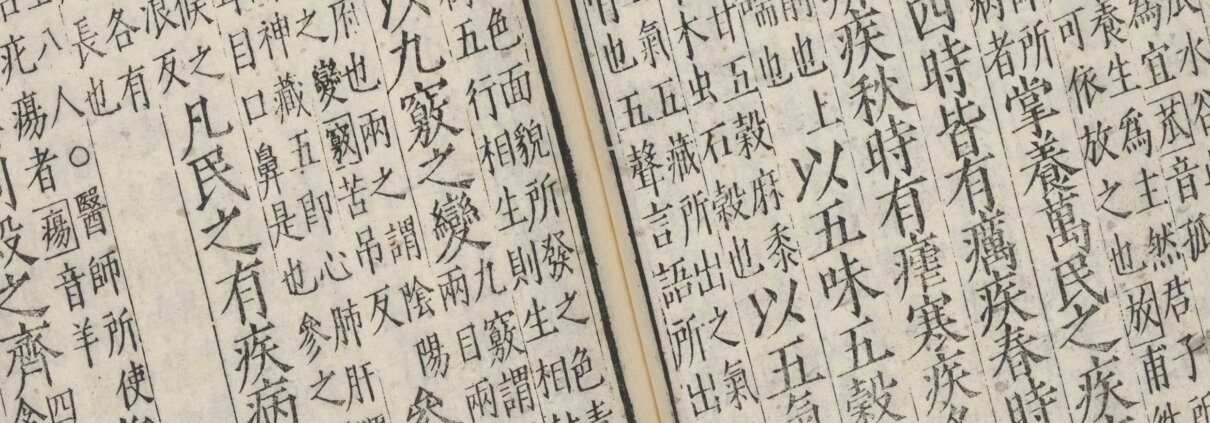 水谷
為宜苽音孤
養生為主然君子
可依放之也放甫
所掌養萬民之疾
病者
四時皆有癘疾春時
疾秋時有瘧寒疾
也上以五味五穀
喘也
甘五穀麻黍以五氣
木虫石穀也
氣五藏所出之氣
也五聲言語所出
色面貌所發之色
五行相生則生相
以九竅之變九竅謂
兩目兩
府也兩之謂陰陽參
之變竅苦吊反
神藏五即心肺肝
目口鼻是也參之
候之凡民之有疾病
浪反
各有
長也醫師所使
八人○
疕瘍者瘍音羊四
殺之齊